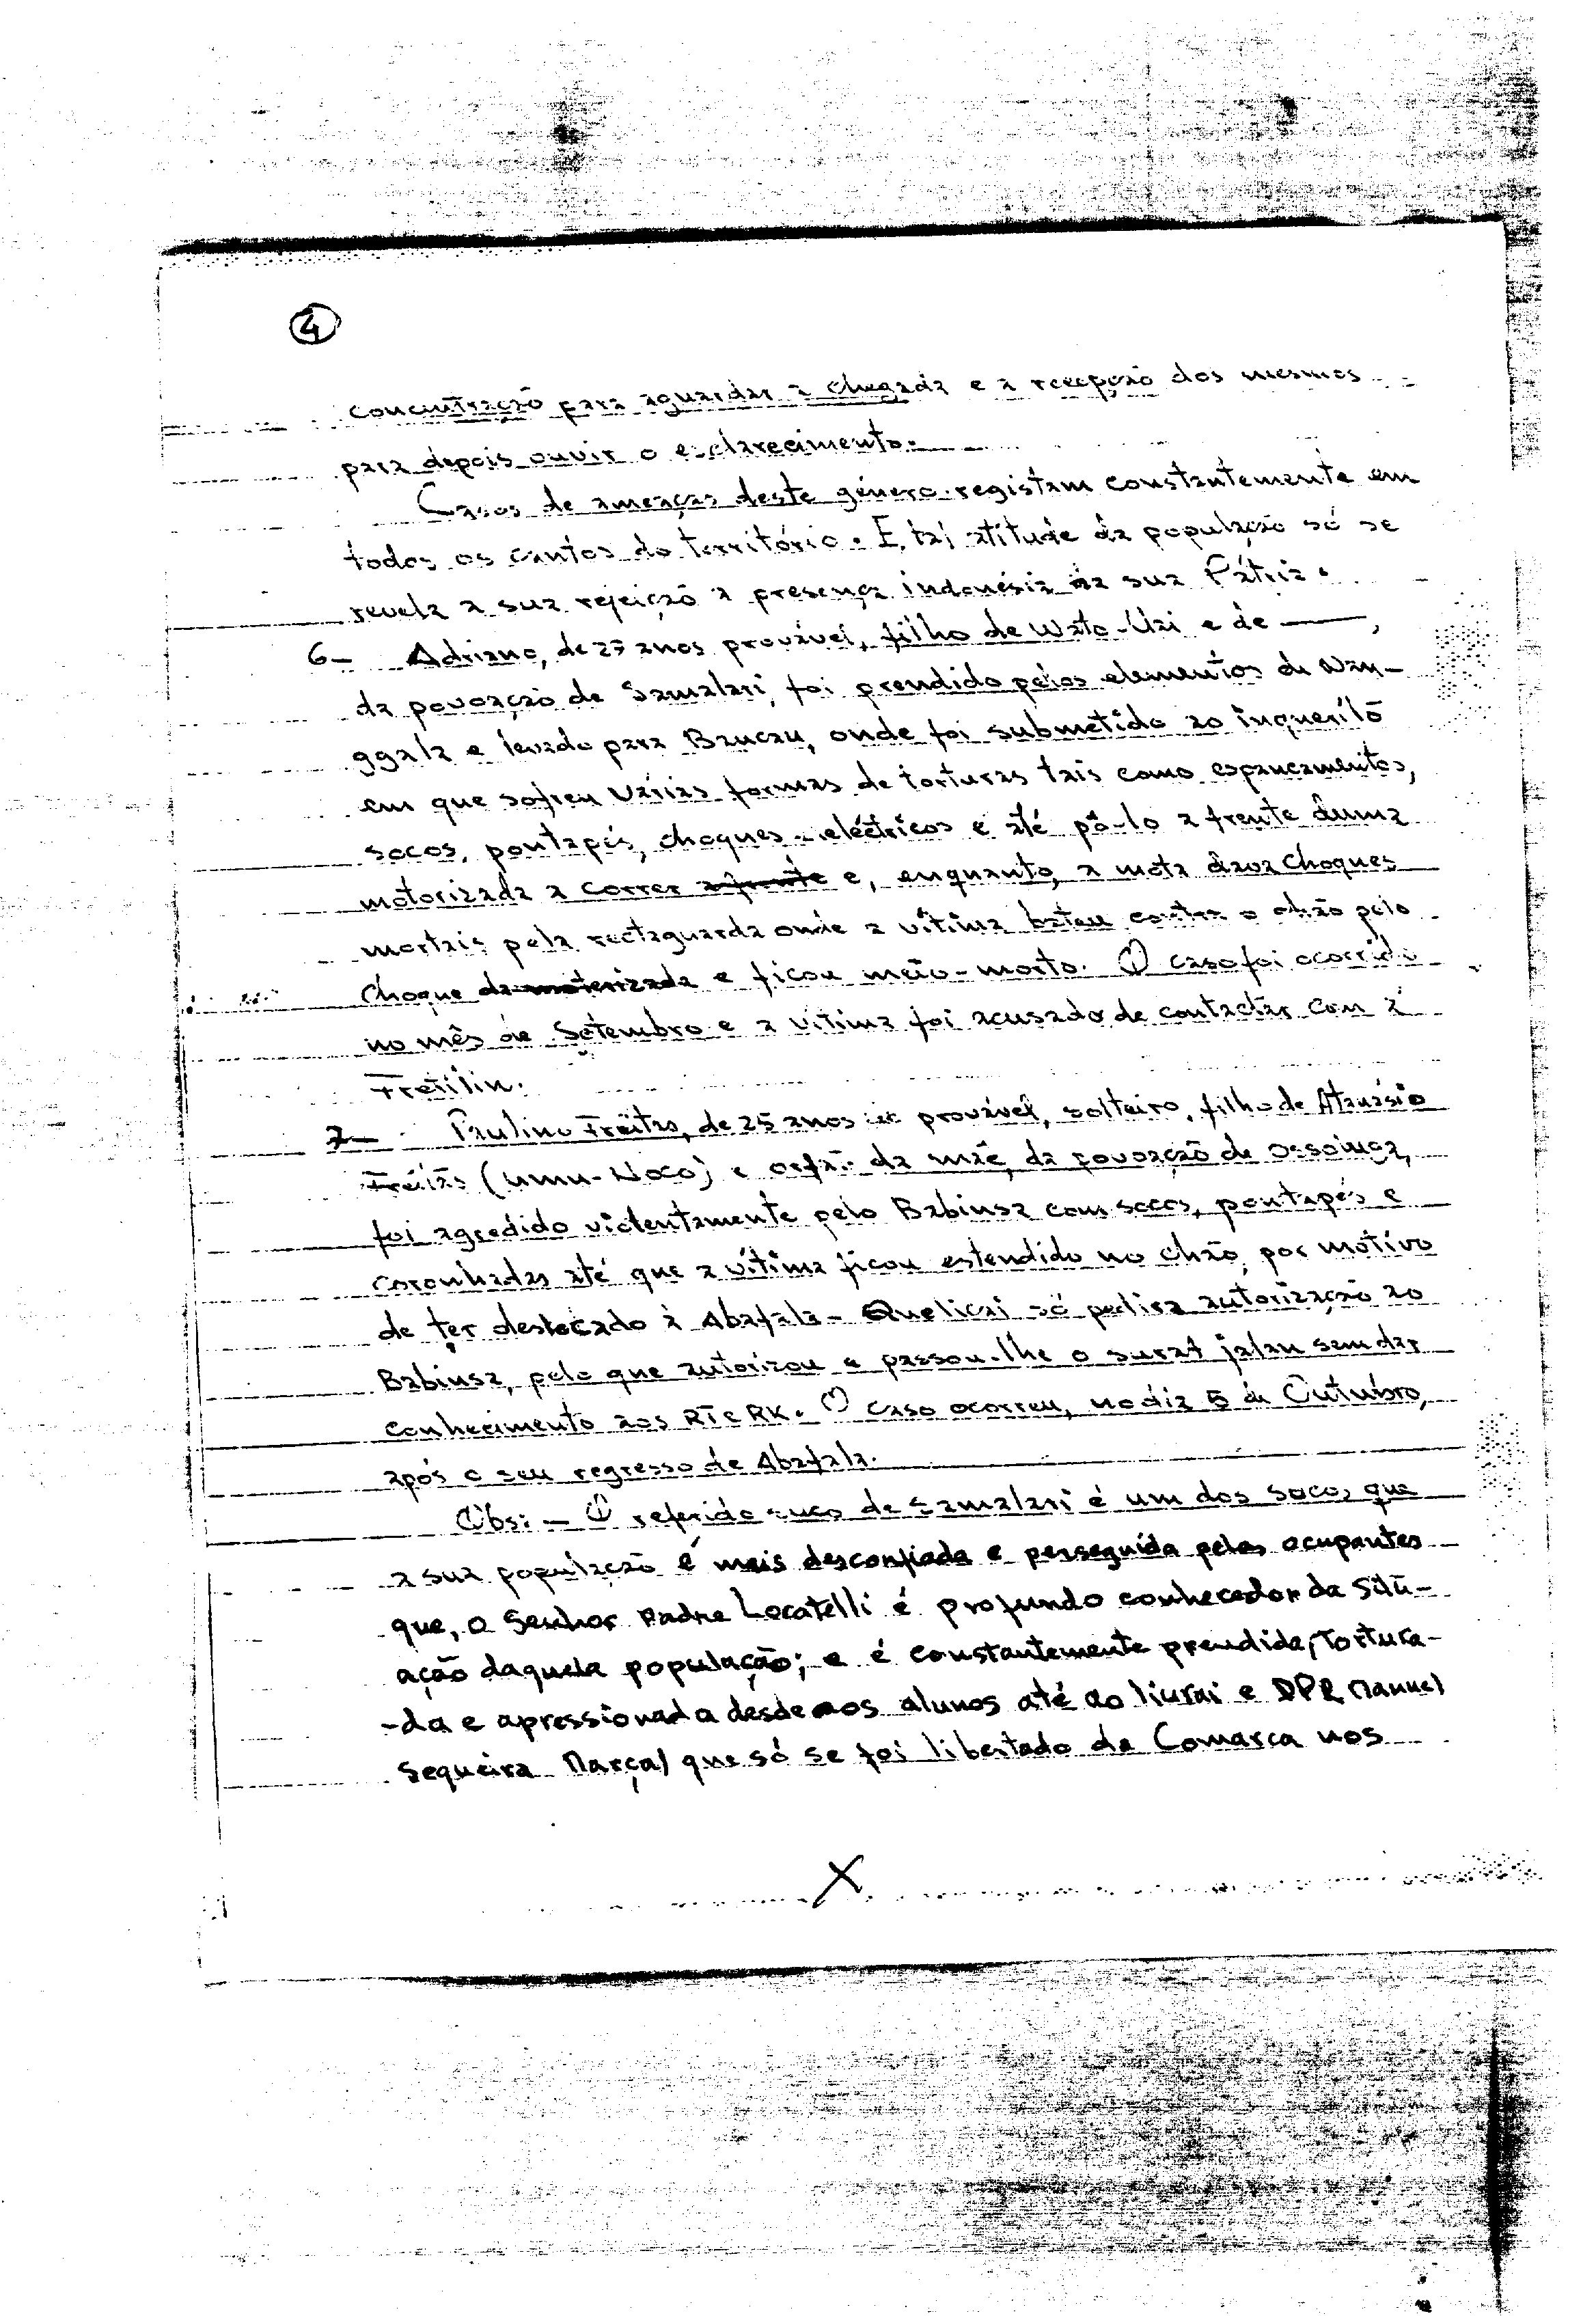 4
concentração para aguardar a chegada e a recepção dos mesmos
para depois ouvir o esclarecimento.
Casos de ameaças deste género registam constantemente em
todos os cantos do território. E, tal atitude da população só se
revela a sua rejeição a presença indonésia na sua Pátria.
6- Adriano, de 27 anos provável, filho de Wato-Uai e de ——,
da povoação de Samalari, foi prendido pelos elementos de Nan-
ggala e levado para Baucau, onde foi submetido ao inquerito
em que sofreu várias formas de torturas tais como espancamentos,
socos, pontapés, choques eléctricos e até pô-lo a frente duma
motorizada a correr a frente e, enquanto, a mota dava choques
mortais pela rectaguarda onde a vítima bateu contra o chão pelo
choque da motorizada e ficou meio-morto. O caso foi ocorrido
no mês de Setembro e a vitima foi acusado de contactar com a
Fretilin.
7- Paulino Freitas, de 25 anos provável, solteiro, filho de Atanásio
Freitas (Umu-Noco) e orfão da mãe, da povoação de Ossoluga,
foi agredido violentamente pelo Babinsa com socos, pontapés e
coronhadas até que a vítima ficou estendido no chão, por motivo
de ter deslocado à Abafala - Quelicai só pedira autorização ao
Babinsa, pelo que autorizou e passou-lhe o surat jalan sem dar
conhecimento aos RT e RK. O caso ocorreu, no dia 5 de Outubro,
após o seu regresso de Abafala.
Obs: - O referido suco de Samalari é um dos sucos que
a sua população é mais desconfiada e perseguida pelos ocupantes
que, o Senhor Padre Locatelli é profundo conhecedor da situ-
ação daquela população; e é constantemente prendida, tortura-
-da e apressionada desde aos alunos até ao liurai e DPR Manuel
Sequeira Marçal que só se foi libertado da Comarca nos
X